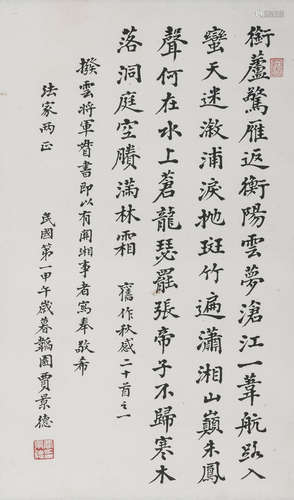 銜蘆驚雁返衡陽雲夢滄江一葦航路入
蠻天迷漵浦淚拋斑竹遍瀟湘山巔朱鳳
聲何在水上蒼龍瑟罷張帝子不歸寒木
落洞庭空賸滿林霜 舊作秋感二十首之一
撥雲將軍督書即以有關湘事者寫奉敬希
法家兩正
民國第一甲午歲暮韜園賈景德